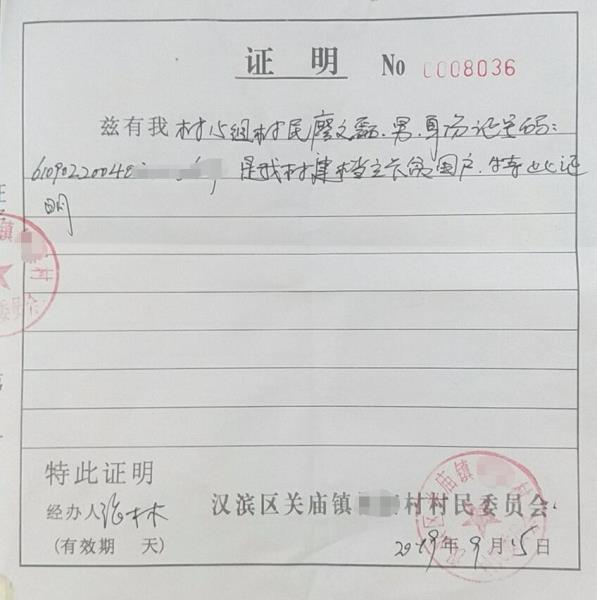 证 明 No 0008036
兹有我村八组村民廖文磊.男.身份证号码:
6109022004
,是我村建档立卡贫困户.特此证
明
特此证明
经办人 张林
汉滨区关庙镇 村村民委员会
(有效期 天)
2019年9月15日